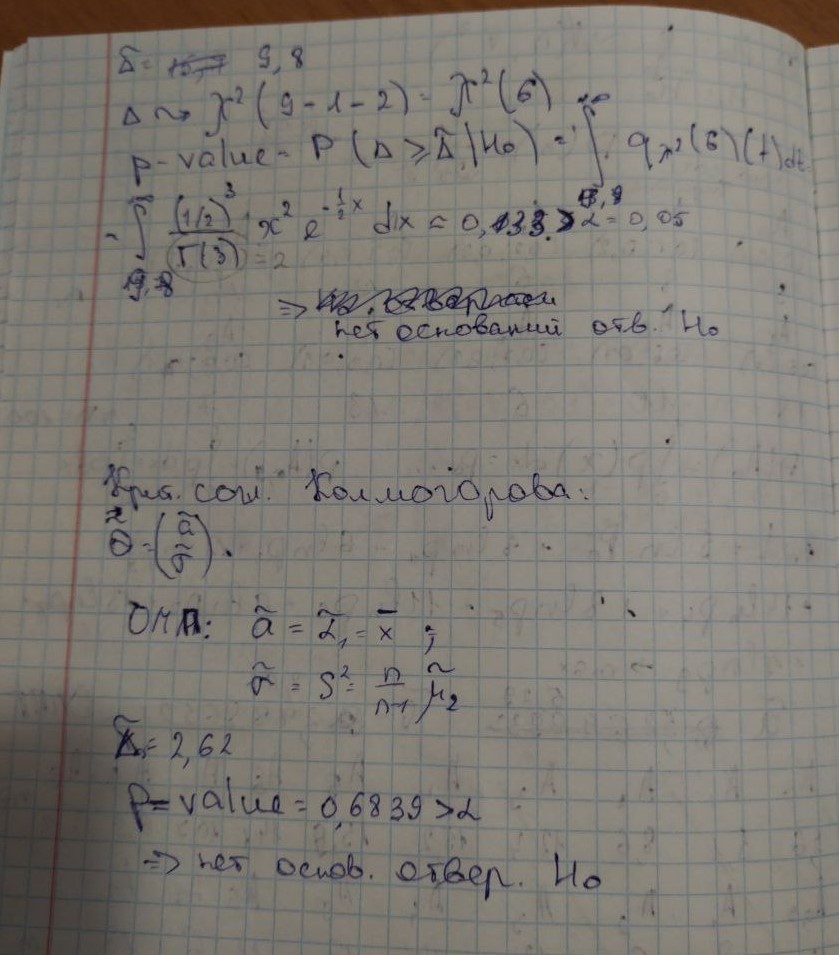 Δ̃ = 9,8
Δ ~> χ²(9-1-2) = χ²(6)
p-value = P(Δ ≥ Δ̃ | H₀) = ∫ q χ²(6)(t)dt
= ∫ (1/2)³ / Γ(3) x² e^{-1/2 x} dx = 0,133 > α = 0,05
Γ(3) = 2
=> нет оснований отв. H₀
Крит. согл. Колмогорова:
θ̃ = (ã σ̃).
ОМП: ã = α̃₁ = x̄ ;
σ̃ = S² = n/(n-1) μ̃₂
Δ̃ = 2,62
p-value = 0,6839 > α
=> нет основ. отвер. H₀